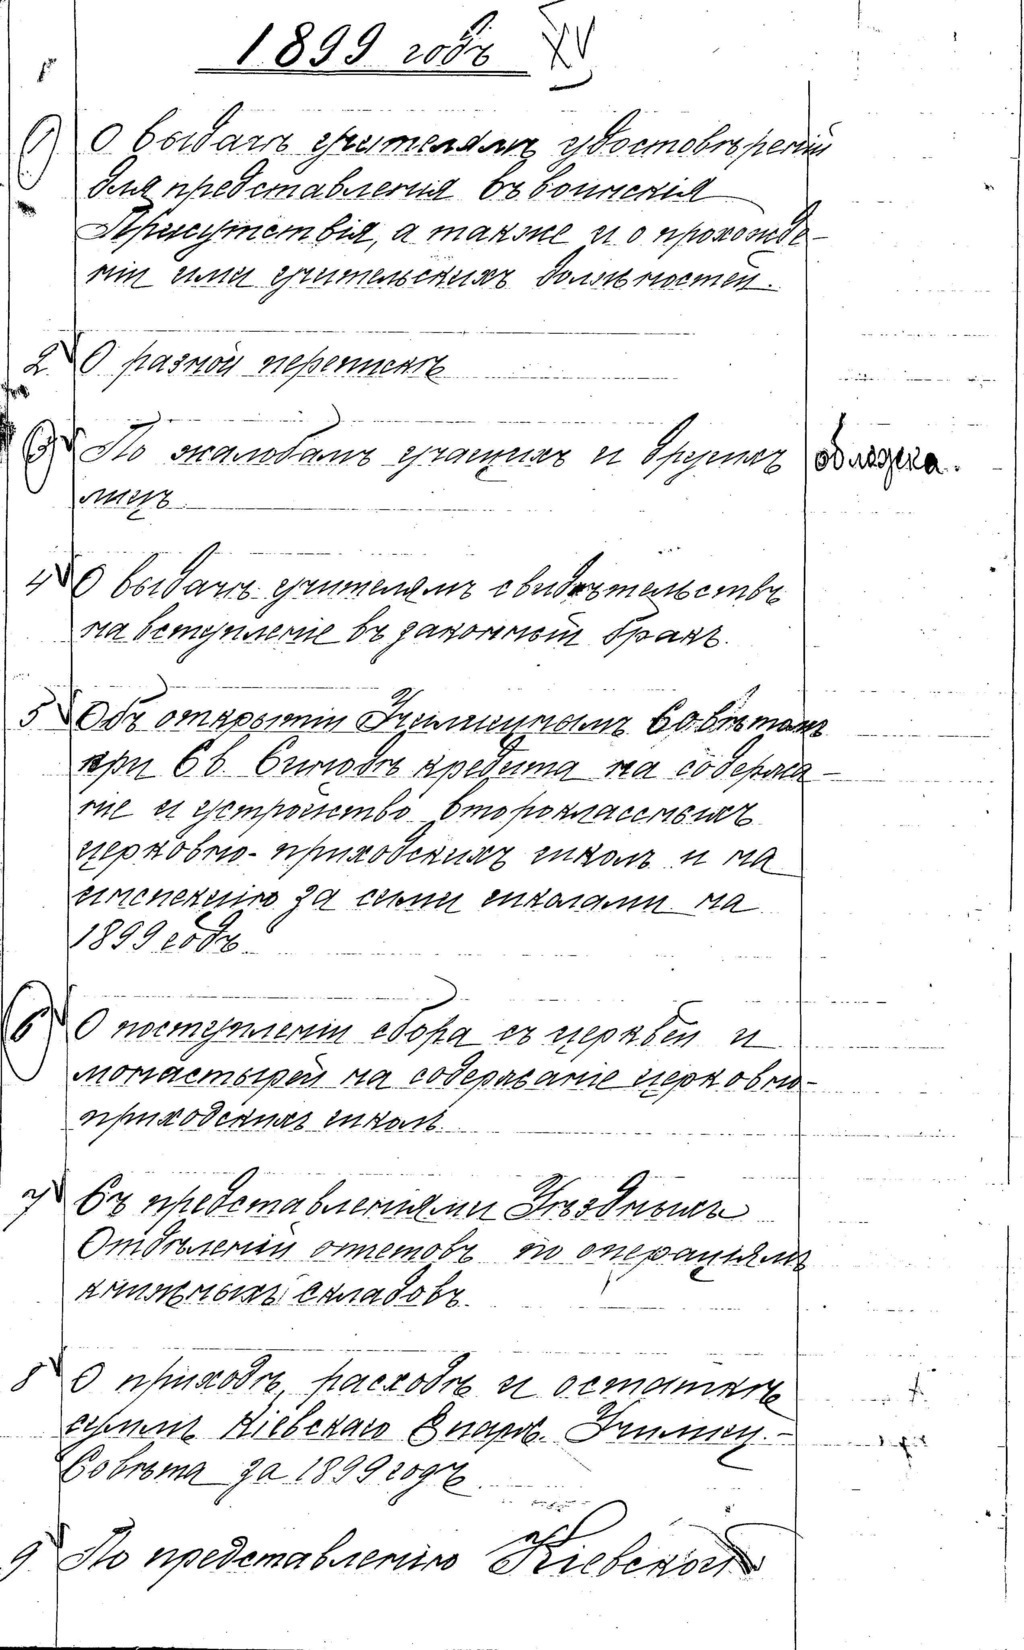 1899 годъ XV
1 О выдачѣ учителямъ удостовѣреній
для представленія въ воинскія
Присутствія, а также и о прохожде-
ніи ими учительскихъ должностей.
2 О разной перепискѣ
3 По жалобамъ учащихъ и другихъ
лицъ
обложка.
4 О выдачѣ учителямъ свидѣтельствъ
на вступленіе въ законный бракъ.
5 Объ открытіи Училищнымъ Совѣтомъ
при Св. Синодѣ кредита на содержа-
ніе и устройство второклассныхъ
церковно-приходскихъ школъ и на
инспекцію за сими школами на
1899 годъ
6 О поступленіи сбора съ церквей и
монастырей на содержаніе церковно-
приходскихъ школъ
7 Съ представленіями Уѣздныхъ
Отдѣленій отчетовъ по операціямъ
книжныхъ складовъ.
8 О приходѣ, расходѣ и остаткѣ
суммъ Кіевскаго Епарх. Училищ.
Совѣта за 1899 годъ
9 По представленію Кіевской